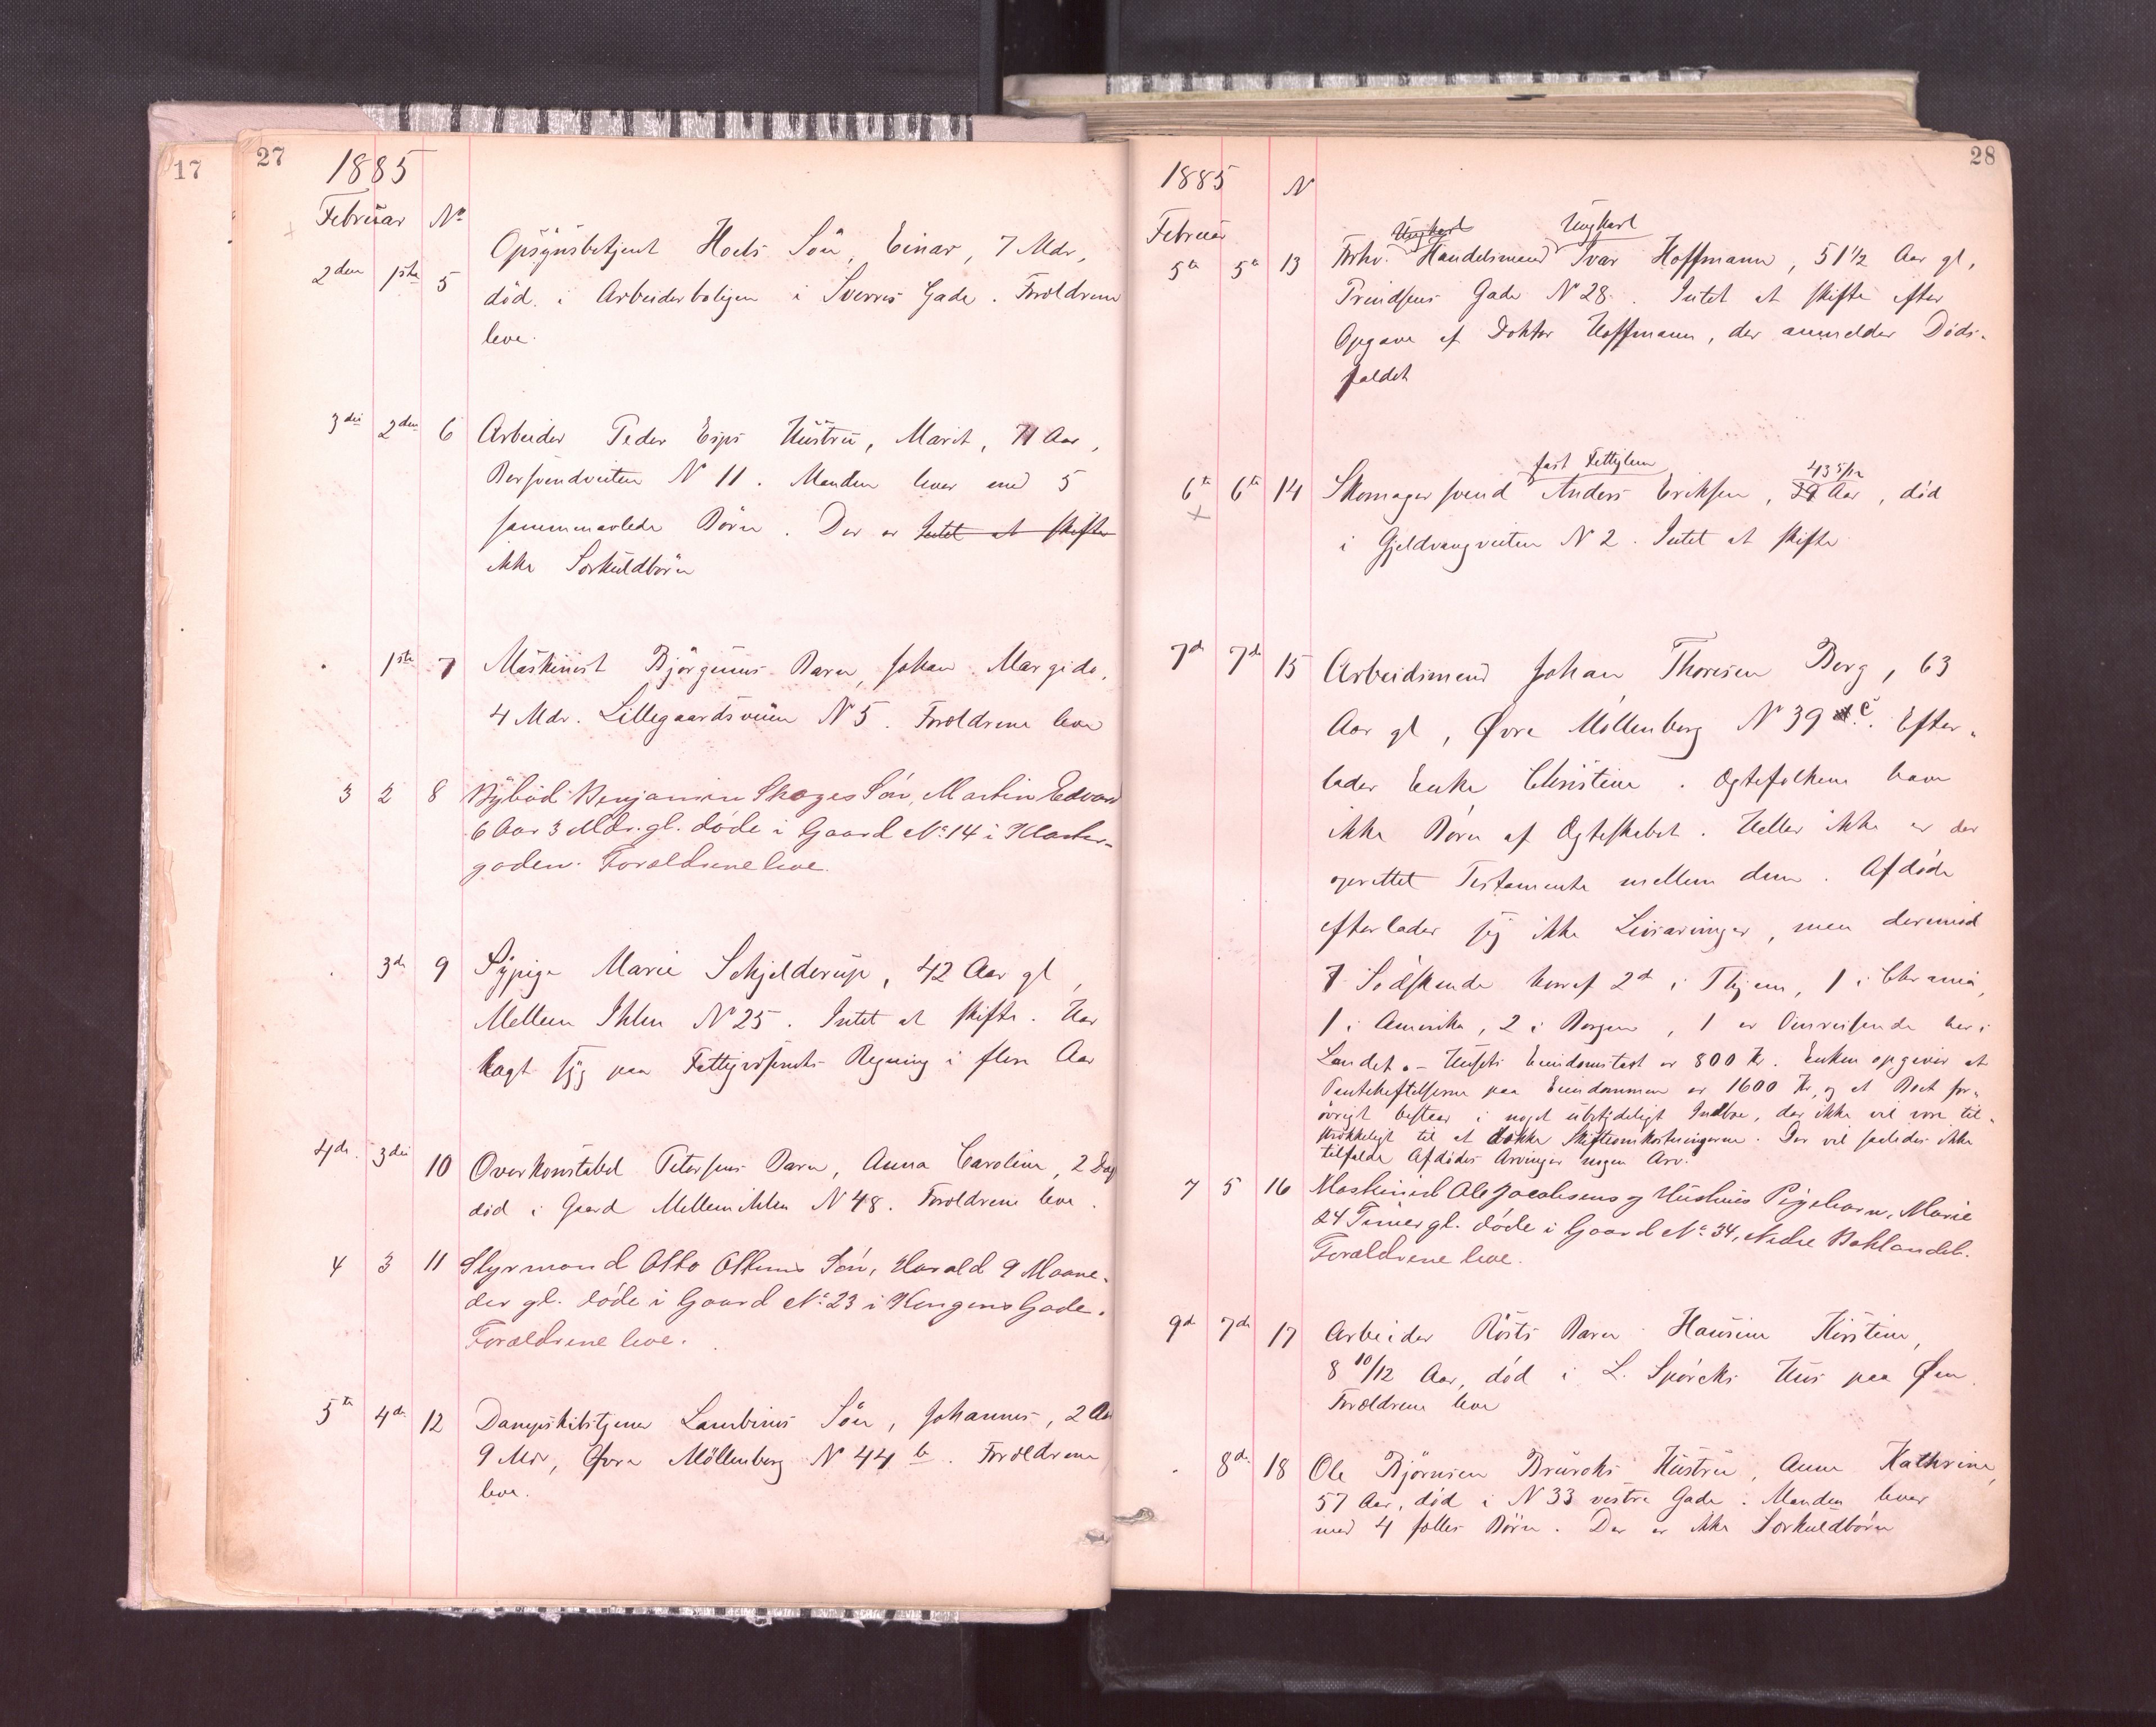 17
27
1885
Februar No
2den 1ste 5 Opsynsbetjent Hoels Søn, Einar, 7 Mdr,
død i Arbeiderboligen i Sverres Gade. Forældrene
leve.
3die 2den 6 Arbeider Peder Esps Hustru, Marit, 71 Aar,
Bersvendveiten N 11. Manden lever med 5
sammenavlede Børn. Der er Intet at skifte
ikke Særkuldbørn
1ste 7 Maskinist Bjørgums Barn, Johan Margido,
4 Mdr. Lillegaardsveien N 5. Forældrene leve
3 2 8 Bybud Benjamin Skoges Søn, Martin Edvard
6 Aar 3 Mdr. gl. døde i Gaard No 14 i Kloster-
gaden. Forældrene leve.
3de 9 Sypige Marie Schjelderup, 42 Aar gl,
Mellem Ihlen N 25. Intet at skifte. Har
lagt syg paa Fattigvæsenets Regning i flere Aar
4de 3die 10 Overkonstabel Petersens Barn, Anna Caroline, 2 Dag
død i Gaard Mellemihlen N 48. Forældrene leve.
4 3 11 Styrmand Otto Ottems Søn, Harald 9 Maane-
der gl. døde i Gaard No 23 i Kongens Gade.
Forældrene leve.
5te 4de 12 Dampskibstjener Lambinus Søn, Johannes, 2 Aar
9 Mdr, Øvre Møllenberg N 44 b. Forældrene
leve.
28
1885 N
Februar
Ungkarl Ungkarl
5te 5te 13 Forhv. Handelsmand Ivar Hoffmann, 51 1/2 Aar gl,
Prindsens Gade N 28. Intet at skifte efter
Opgave af Doktor Hoffmann, der anmelder Døds-
faldet
fast Fattiglem 43 5/12
6te 6te 14 Skomagersvend Anders Eriksen, 39 Aar, død
i Gjeldvangveiten N 2. Intet at skifte
7de 7de 15 Arbeidsmand Johan Thoresen Berg, 63
Aar gl, Øvre Møllenberg N 39 c. Efter-
lader Enke Christine. Ægtefolkene have
ikke Børn af Ægteskabet. Heller ikke er der
oprettet Testamente mellem dem. Afdøde
efterlader sig ikke Livsarvinger, men derimod
7 Sødskende hvoraf 2de i Thjem, 1 i Chrania,
1 i Amerika, 2 i Bergen, 1 er Omreisende her i
Landet. - Husets Eiendomstaxt er 800 Kr. Enken opgiver at
Panteheftelserne paa Eiendommen er 1600 Kr, og at Boet for-
øvrigt bestaar i noget ubetydeligt Indbo, der ikke vil være til-
strækkeligt til at dække Skifteomkostningerne. Der vil saaledes ikke
tilfalde Afdødes Arvinger nogen Arv.
7 5 16 Maskinist Ole Jacobsens og Hustrues Pigebarn, Marie
24 Timer gl. døde i Gaard No 34, Nedre Baklandet.
Forældrene leve.
9de 7de 17 Arbeider Røsts Barn Hansine Kirstine,
8 10/12 Aar, død i L. Spørcks Hus paa Øen.
Forældrene leve
8de 18 Ole Bjørnsen Bruroks Hustru, Anne Kathrine,
57 Aar, død i N 33 vestre Gade. Manden lever
med 4 fælles Børn. Der er ikke Særkuldbørn